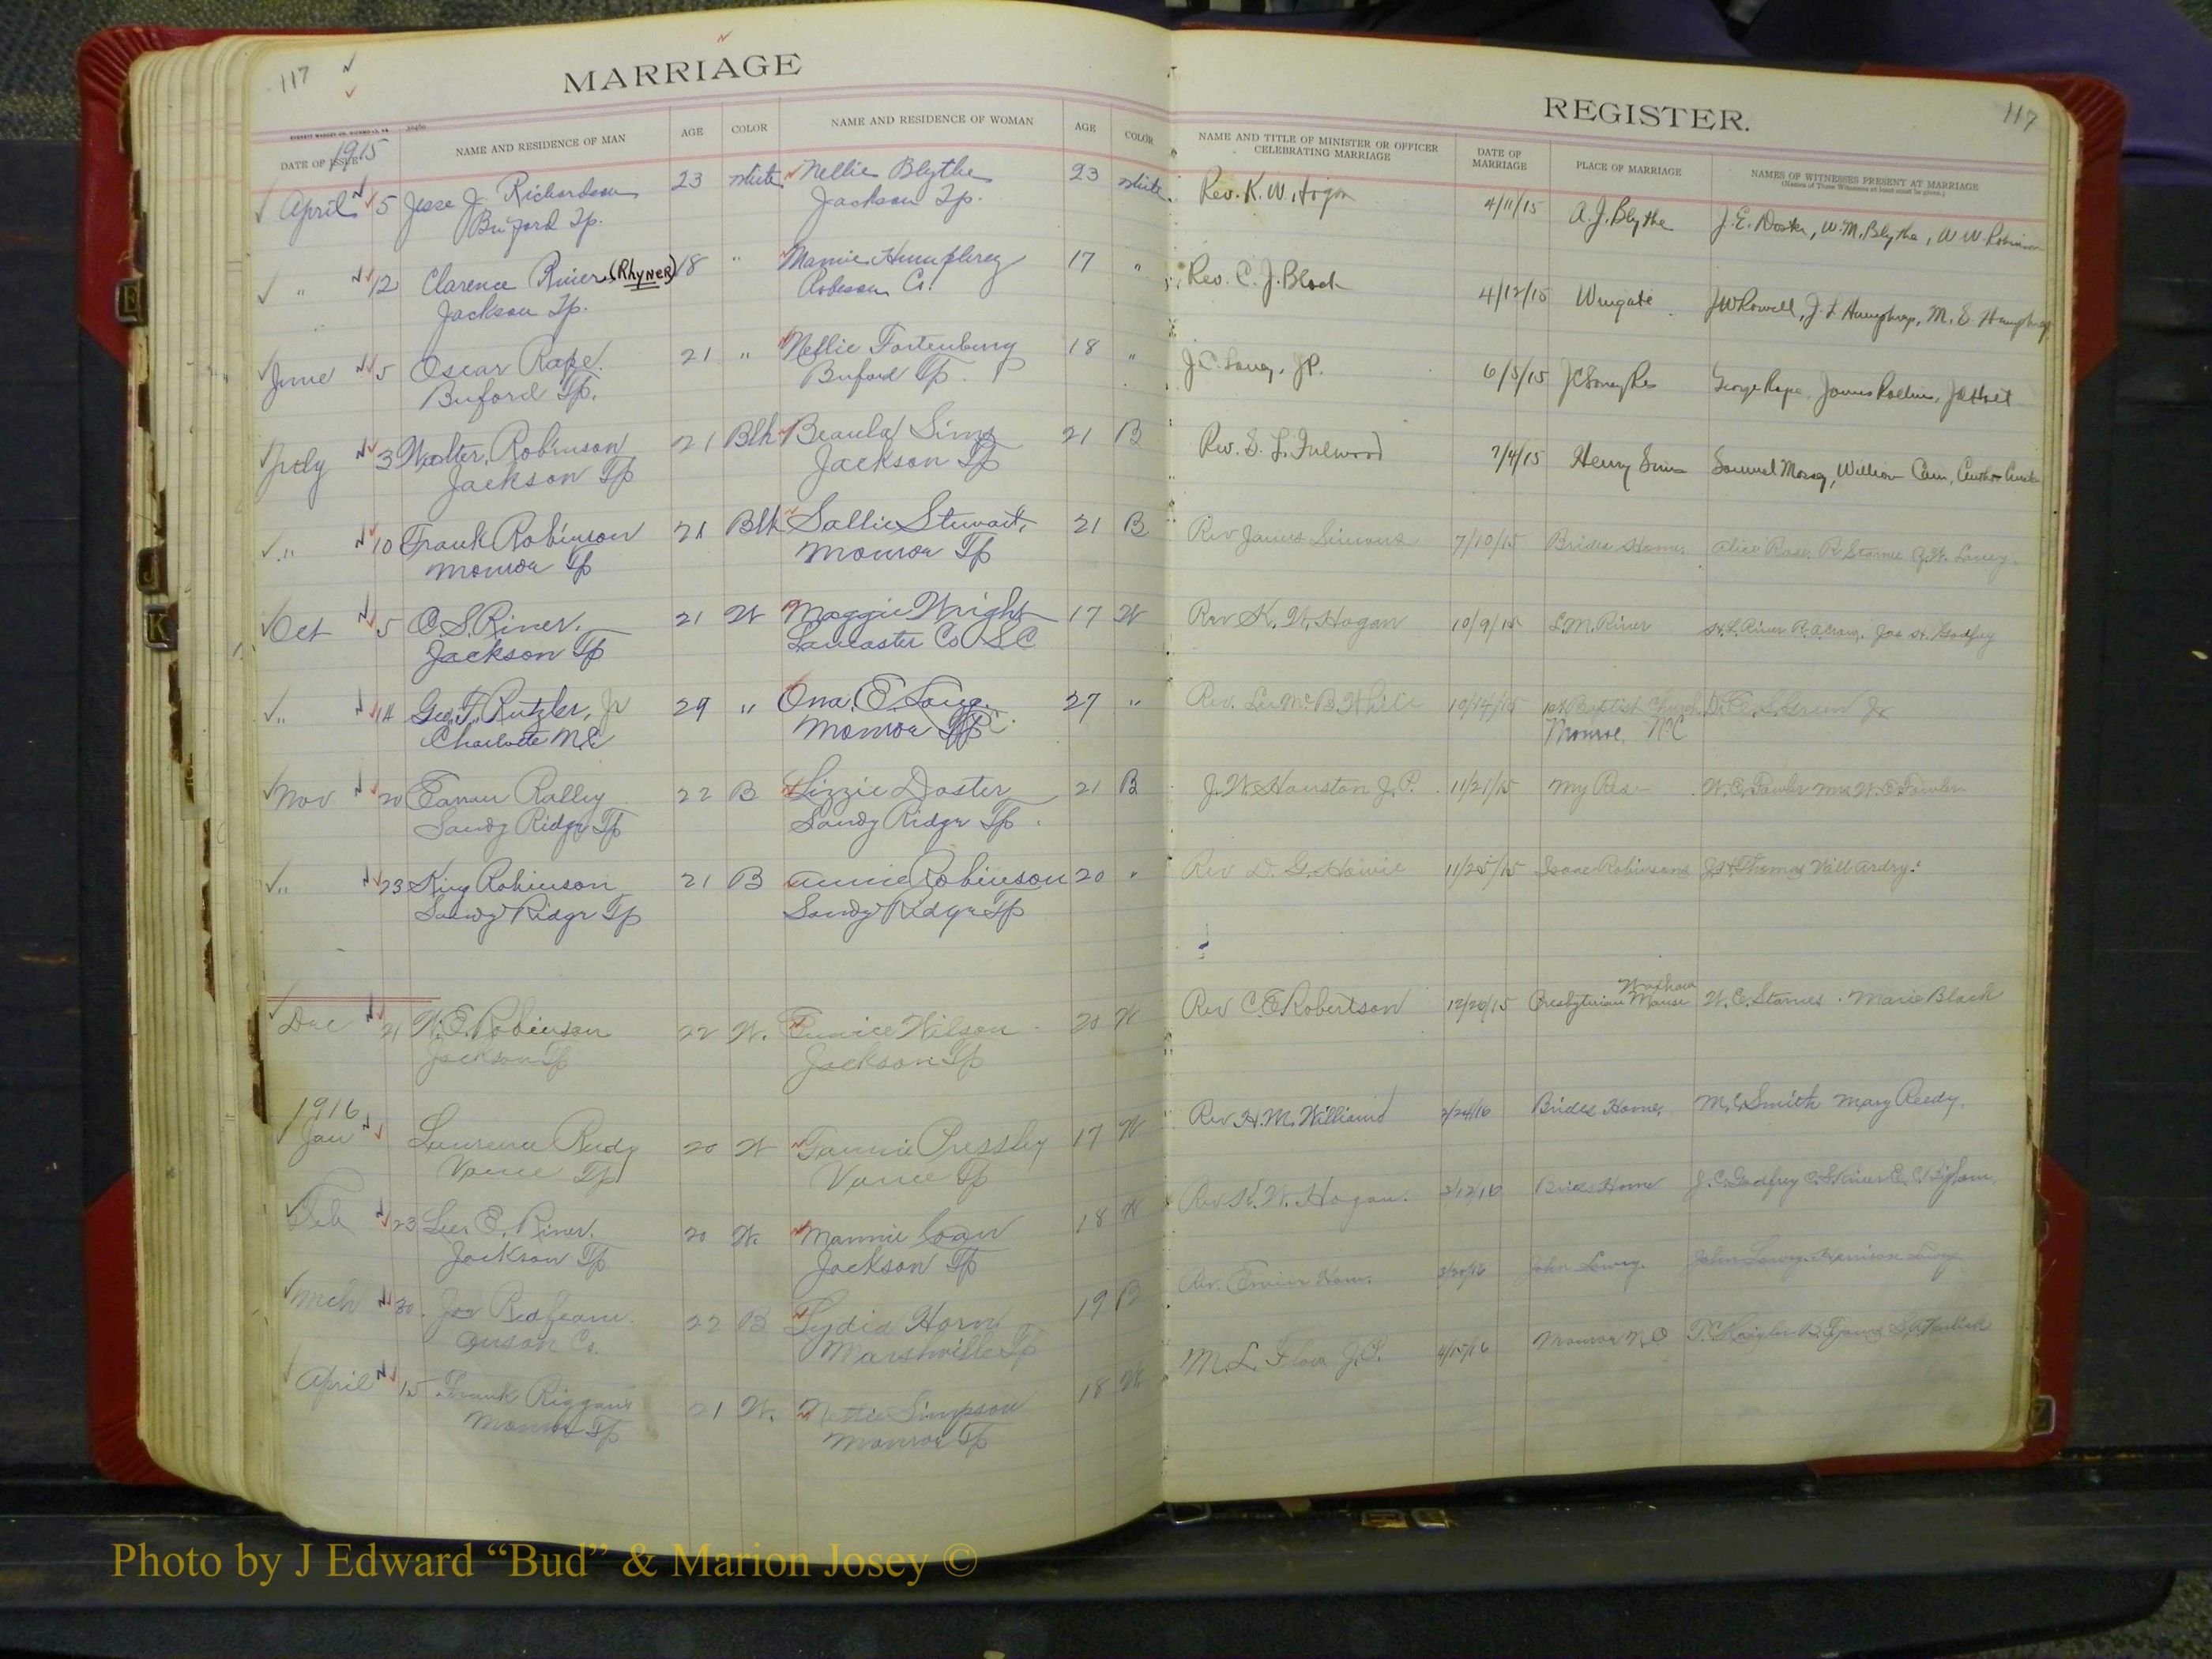 117
MARRIAGE
DATE OF ISSUE NAME AND RESIDENCE OF MAN AGE COLOR NAME AND RESIDENCE OF WOMAN AGE COLOR
1915
April 5 Jesse J. Richardson 23 white Nellie Blythe 23 white
Buford Tp. Jackson Tp.
" 12 Clarence Riner (Rhyner) 18 " Mamie Humphrey 17 "
Jackson Tp. Robeson Co.
June 5 Oscar Rape 21 " Nellie Fortenberry 18 "
Buford Tp. Buford Tp.
July 3 Walter Robinson 21 Blk Beaula Sims 21 B
Jackson Tp Jackson Tp
" 10 Frank Robinson 21 Blk Sallie Stewart 21 B
Monroe Tp Monroe Tp
Oct 5 C. S. Riner. 21 W Maggie Wright 17 W
Jackson Tp Lancaster Co S.C
" 14 Geo. F. Rutzler, Jr 29 " Ona. E. 27 "
Charlotte N.C Monroe
Nov 20 Ralley 22 B Lizzie Doster 21 B
Sandy Ridge Tp Sandy Ridge Tp.
" 23 King Robinson 21 B Annie Robinson 20 "
Sandy Ridge Tp Sandy Ridge Tp
Dec 21 W. E. Robinson 22 W. Eunice Wilson 20 W
Jackson Tp Jackson Tp
1916
Jan Laurence 20 W Fannie Pressley 17 W
Vance Tp Vance Tp
Feb 23 Lee E. Riner. 20 W. Mannie 18 W
Jackson Tp Jackson Tp
Mch 30. Joe Redfearn. 22 B Lydia Horn 19 B
Anson Co. Marshville Tp
April 15 Frank Riggans 21 W. Nettie Simpson 18 W
Monroe Tp Monroe Tp
117
REGISTER.
NAME AND TITLE OF MINISTER OR OFFICER CELEBRATING MARRIAGE DATE OF MARRIAGE PLACE OF MARRIAGE NAMES OF WITNESSES PRESENT AT MARRIAGE
(Names of Three Witnesses at least must be given.)
Rev. K. W. Hogan 4/11/15 A. J. Blythe J. E. W. M. Blythe, W W Robinson
Rev. C. J. Black 4/12/15 Wingate J W Rowell, J. L Humphrey, M. S. Humphrey
J. C. Laney, J.P. 6/5/15 J C Laney Res George Rape, James Rollins,
Rev. S. L. Fulwood 7/4/15 Henry Sims Samuel William
Rev James Simons 7/10/15 Brides Home. Alice Rose. R. Starnes Laney.
Rev K. W. Hogan 10/9/15 L. M. Riner Godfrey
Rev. Lee McB. White 10/14/15 1st Baptist Church Green Jr
Monroe, N.C
J. W. Houston J. P. 11/21/15 My Res W. E. Fowler Mrs W. E Fowler
Rev D. G. Howie 11/25/15 Isaac Robinsons Thomas Will Ardry.
Rev C. E Robertson 12/26/15 Presbyterian Manse Waxhaw W. E. Starnes. Marie Black
Rev H. M. Williams Brides Home. M. C. Smith Mary Reedy.
Rev K. W. Hogan. Brides Home J. C. Godfrey C. S. Riner E. C. Bigham.
Rev. Horn. 3/30/16 John Lowry. John Lowry. Harrison Lowry
M. L. Flow J. P. 4/15/16 Monroe N. C
Photo by J Edward “Bud” & Marion Josey ©